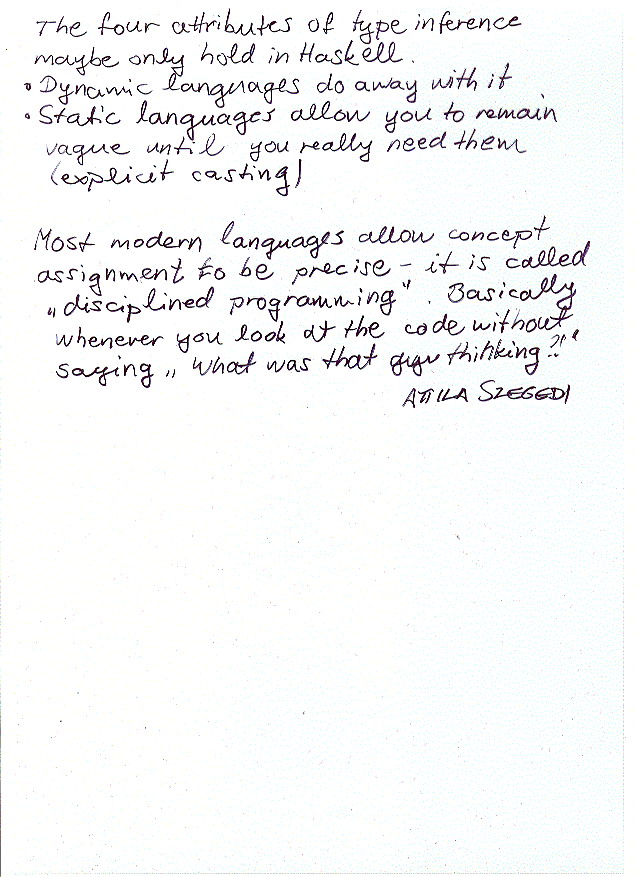 The four attributes of type inference
maybe only hold in Haskell.
• Dynamic languages do away with it
• Static languages allow you to remain
vague until you really need them
(explicit casting)
Most modern languages allow concept
assignment to be precise – it is called
„disciplined programming". Basically
whenever you look at the code without
saying „What was that guy thinking?!"
ATTILA SZEGEDI